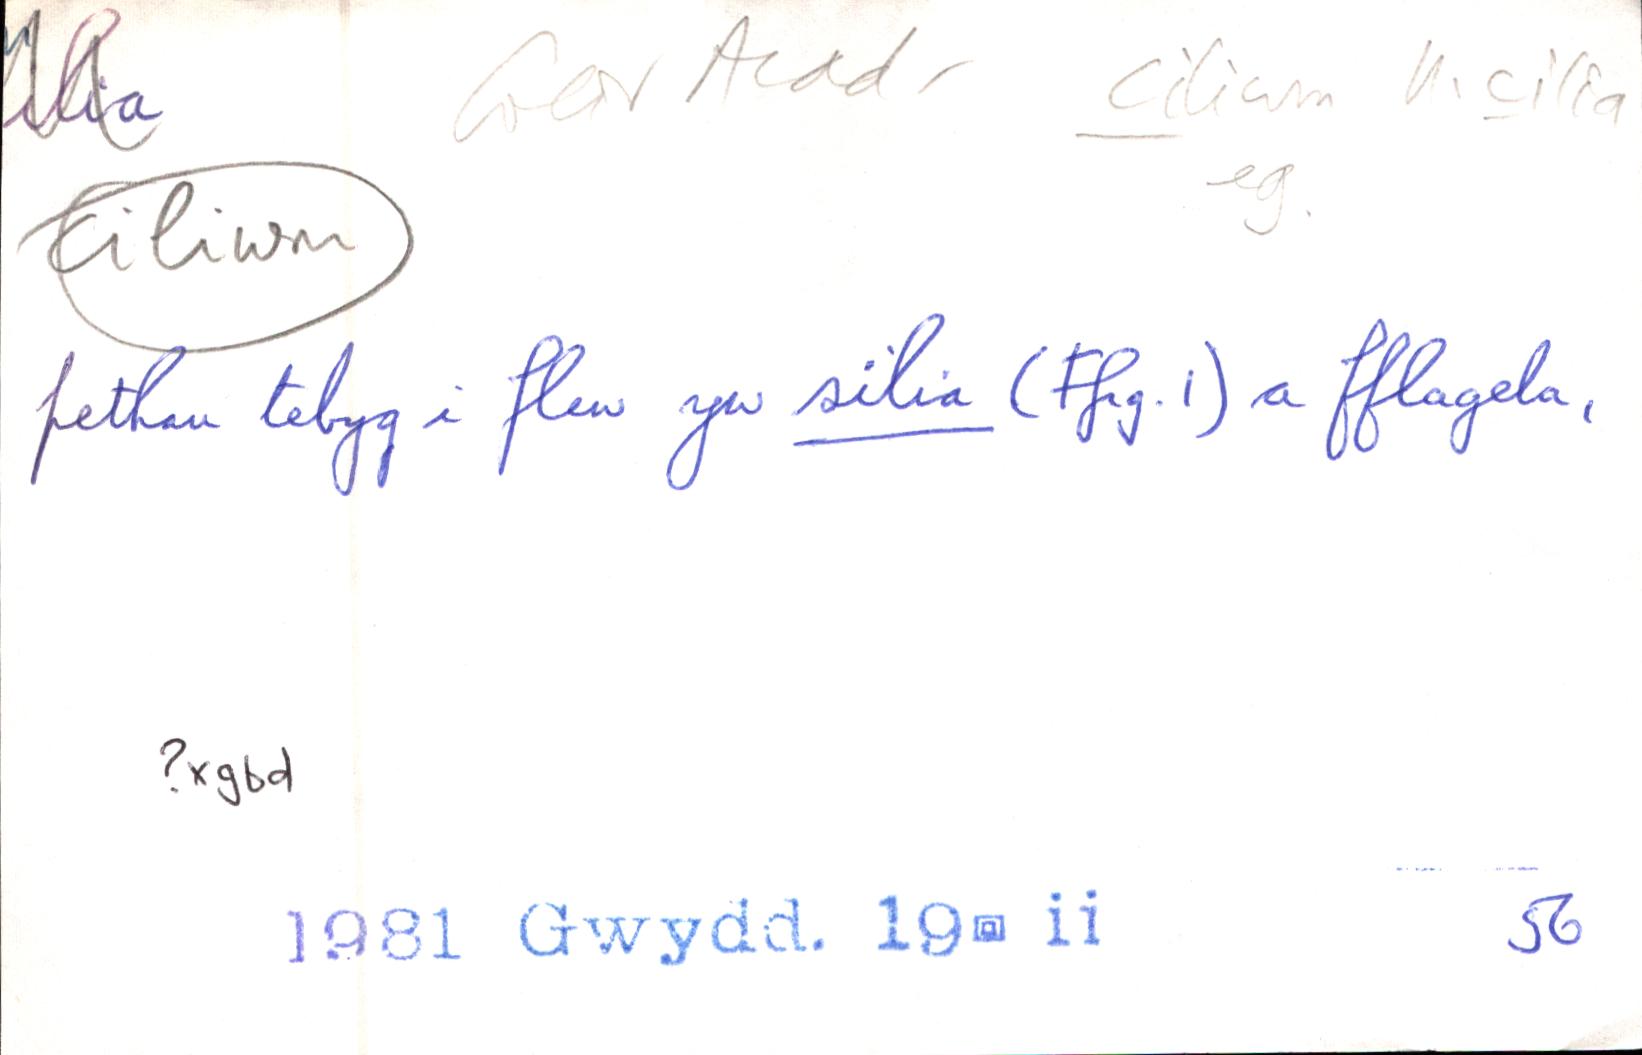 silia Geir Acad. ciliwm ll. cilia
eg.
ciliwm
pethau tebyg i flew yw silia (Ffig. 1) a fflagela,
?xgbd
1981 Gwydd. 19 ii 56